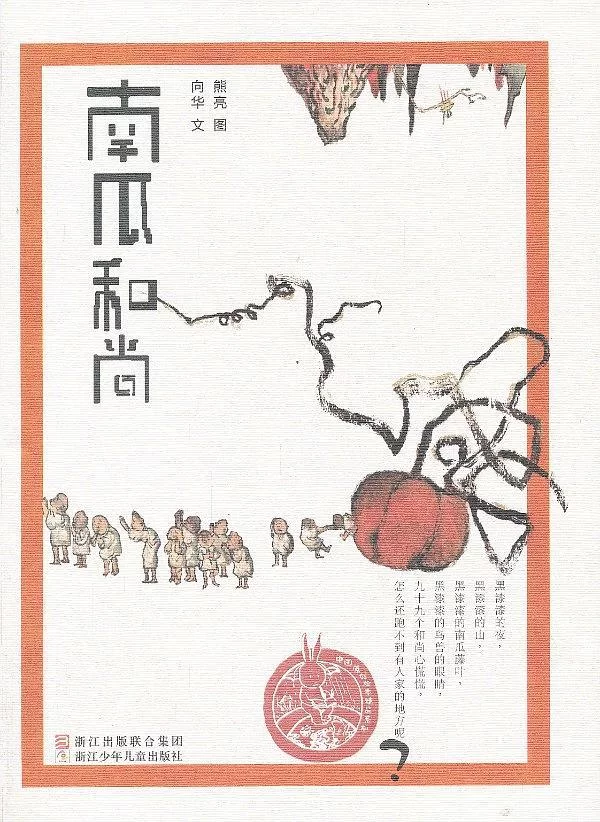 南瓜和尚
熊亮 图
向华 文
黑漆漆的夜，
黑漆漆的山，
黑漆漆的南瓜藤叶，
黑漆漆的鸟兽的眼睛，
九十九个和尚心慌慌，
怎么还跑不到有人家的地方呢
?
浙江出版联合集团
浙江少年儿童出版社